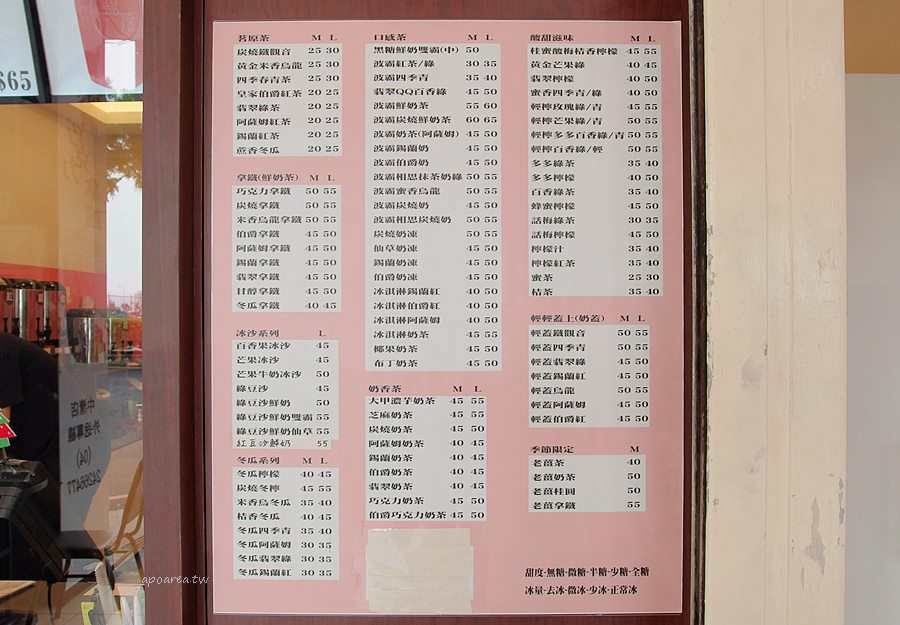 $65
茗原茶 M L
炭燒鐵觀音 25 30
黃金米香烏龍 25 30
四季春青茶 25 30
皇家伯爵紅茶 20 25
翡翠綠茶 20 25
阿薩姆紅茶 20 25
錫蘭紅茶 20 25
蔗香冬瓜 20 25
拿鐵(鮮奶茶) M L
巧克力拿鐵 50 55
炭燒拿鐵 50 55
米香烏龍拿鐵 50 55
伯爵拿鐵 45 50
阿薩姆拿鐵 45 50
錫蘭拿鐵 45 50
翡翠拿鐵 45 50
甘醇拿鐵 45 50
冬瓜拿鐵 40 45
冰沙系列 L
百香果冰沙 45
芒果冰沙 45
芒果牛奶冰沙 50
綠豆沙 45
綠豆沙鮮奶 50
綠豆沙鮮奶雙霸 55
綠豆沙鮮奶仙草 55
紅豆沙鮮奶 55
冬瓜系列 M L
冬瓜檸檬 40 45
炭燒冬檸 45 55
米香烏冬瓜 35 40
桔香冬瓜 40 45
冬瓜四季青 35 40
冬瓜阿薩姆 30 35
冬瓜翡翠綠 30 35
冬瓜錫蘭紅 30 35
口感茶 M L
黑糖鮮奶雙霸(中) 50
波霸紅茶/綠 30 35
波霸四季青 35 40
翡翠QQ百香綠 45 50
波霸鮮奶茶 55 60
波霸炭燒鮮奶茶 60 65
波霸奶茶(阿薩姆) 45 50
波霸錫蘭奶 45 50
波霸伯爵奶 45 50
波霸相思抹茶奶綠 50 55
波霸蜜香烏龍 50 55
波霸炭燒奶 45 50
波霸相思炭燒奶 50 55
炭燒奶凍 50 55
仙草奶凍 45 50
錫蘭奶凍 45 50
伯爵奶凍 45 50
冰淇淋錫蘭紅 40 50
冰淇淋伯爵紅 40 50
冰淇淋阿薩姆 40 50
冰淇淋奶茶 45 55
椰果奶茶 45 50
布丁奶茶 45 50
奶香茶 M L
大甲濃芋奶茶 45 55
芝麻奶茶 45 55
炭燒奶茶 45 50
阿薩姆奶茶 40 45
錫蘭奶茶 40 45
伯爵奶茶 40 45
翡翠奶茶 40 45
巧克力奶茶 45 50
伯爵巧克力奶茶 45 50
酸甜滋味 M L
桂蜜酸梅桔香檸檬 45 55
黃金芒果綠 40 45
翡翠檸檬 40 50
蜜香四季青/綠 40 50
輕檸玫瑰綠/青 45 55
輕檸芒果綠/青 50 55
輕檸多多百香綠/青 50 55
輕檸百香綠/輕 50 55
多多綠茶 35 40
多多檸檬 40 50
百香綠茶 35 40
蜂蜜檸檬 45 50
話梅綠茶 30 35
話梅檸檬 45 50
檸檬汁 35 40
檸檬紅茶 35 40
蜜茶 25 30
桔茶 35 40
輕輕蓋上(奶蓋) M L
輕蓋鐵觀音 50 55
輕蓋四季青 50 55
輕蓋翡翠綠 45 50
輕蓋錫蘭紅 45 50
輕蓋烏龍 50 55
輕蓋阿薩姆 45 50
輕蓋伯爵紅 45 50
季節限定 M
老薑茶 40
老薑奶茶 50
老薑桂圓 50
老薑拿鐵 55
甜度-無糖-微糖-半糖-少糖-全糖
冰量-去冰-微冰-少冰-正常冰
外送專線
(04)
24266477
apoarea.tw